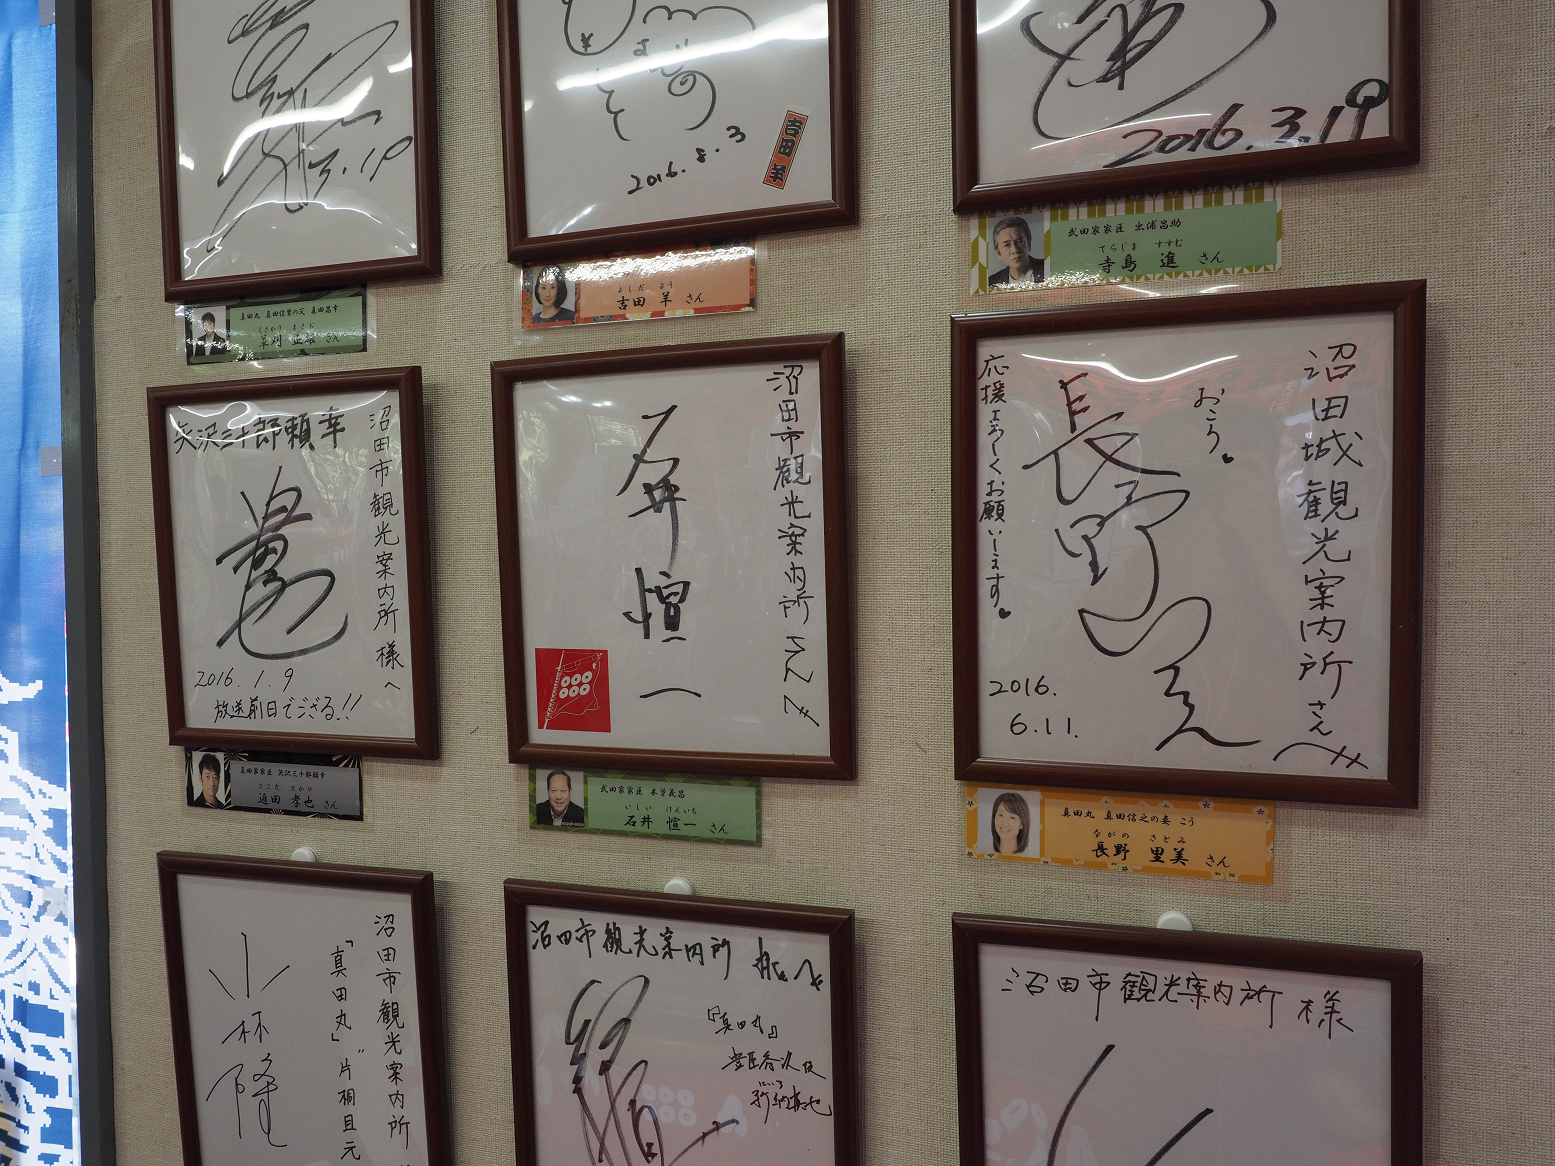 3.19
よしだ
よう
2016.8.3
吉田羊
2016.3.19
真田丸 真田信繁の父 真田昌幸
くさかり まさお
草刈 正雄 さん
よしだ よう
吉田 羊 さん
武田家家臣 出浦昌助
てらじま すすむ
寺島 進 さん
沼田市観光案内所様へ
矢沢三十郎頼幸
2016.1.9
放送前日でござる!!
真田家家臣 矢沢三十郎頼幸
さこた たかや
迫田 孝也 さん
沼田市観光案内所さんへ
石井愃一
武田家家臣 木曽義昌
いしい けんいち
石井 愃一 さん
沼田城観光案内所さんへ
おこう
長野
応援よろしくお願いします
2016.
6.11.
真田丸 真田信之の妻 こう
ながの さとみ
長野 里美 さん
沼田市観光案内所
「真田丸」片桐且元
小林隆
沼田市観光案内所 様へ
『真田丸』
沼田市観光案内所 様